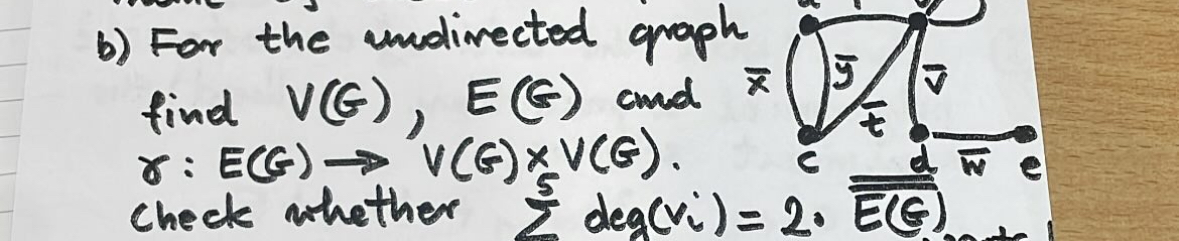 b) For the undirected graph
find V(G), E(G) and
γ : E(G) → V(G) × V(G).
Check whether 5 ∑ deg(vi) = 2 · E(G)
x̄ ȳ t̄ v̄
c d w̄ e